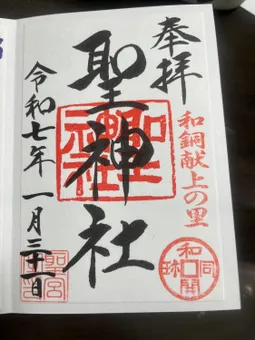 奉拝
和銅献上の里
和同開珎
聖神社
令和七年一月三十一日